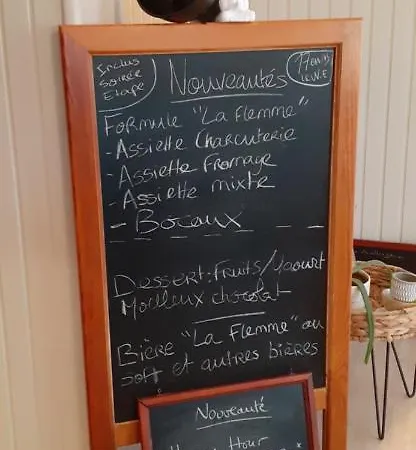 Inclus
soirée
Etape
Nouveautés
Formule "La Flemme"
- Assiette Charcuterie
- Assiette Fromage
- Assiette mixte
- Bocaux
Dessert: Fruits/Yaourt
Moelleux chocolat
Bière "La Flemme" ou
soft et autres bières
Nouveauté
Hour